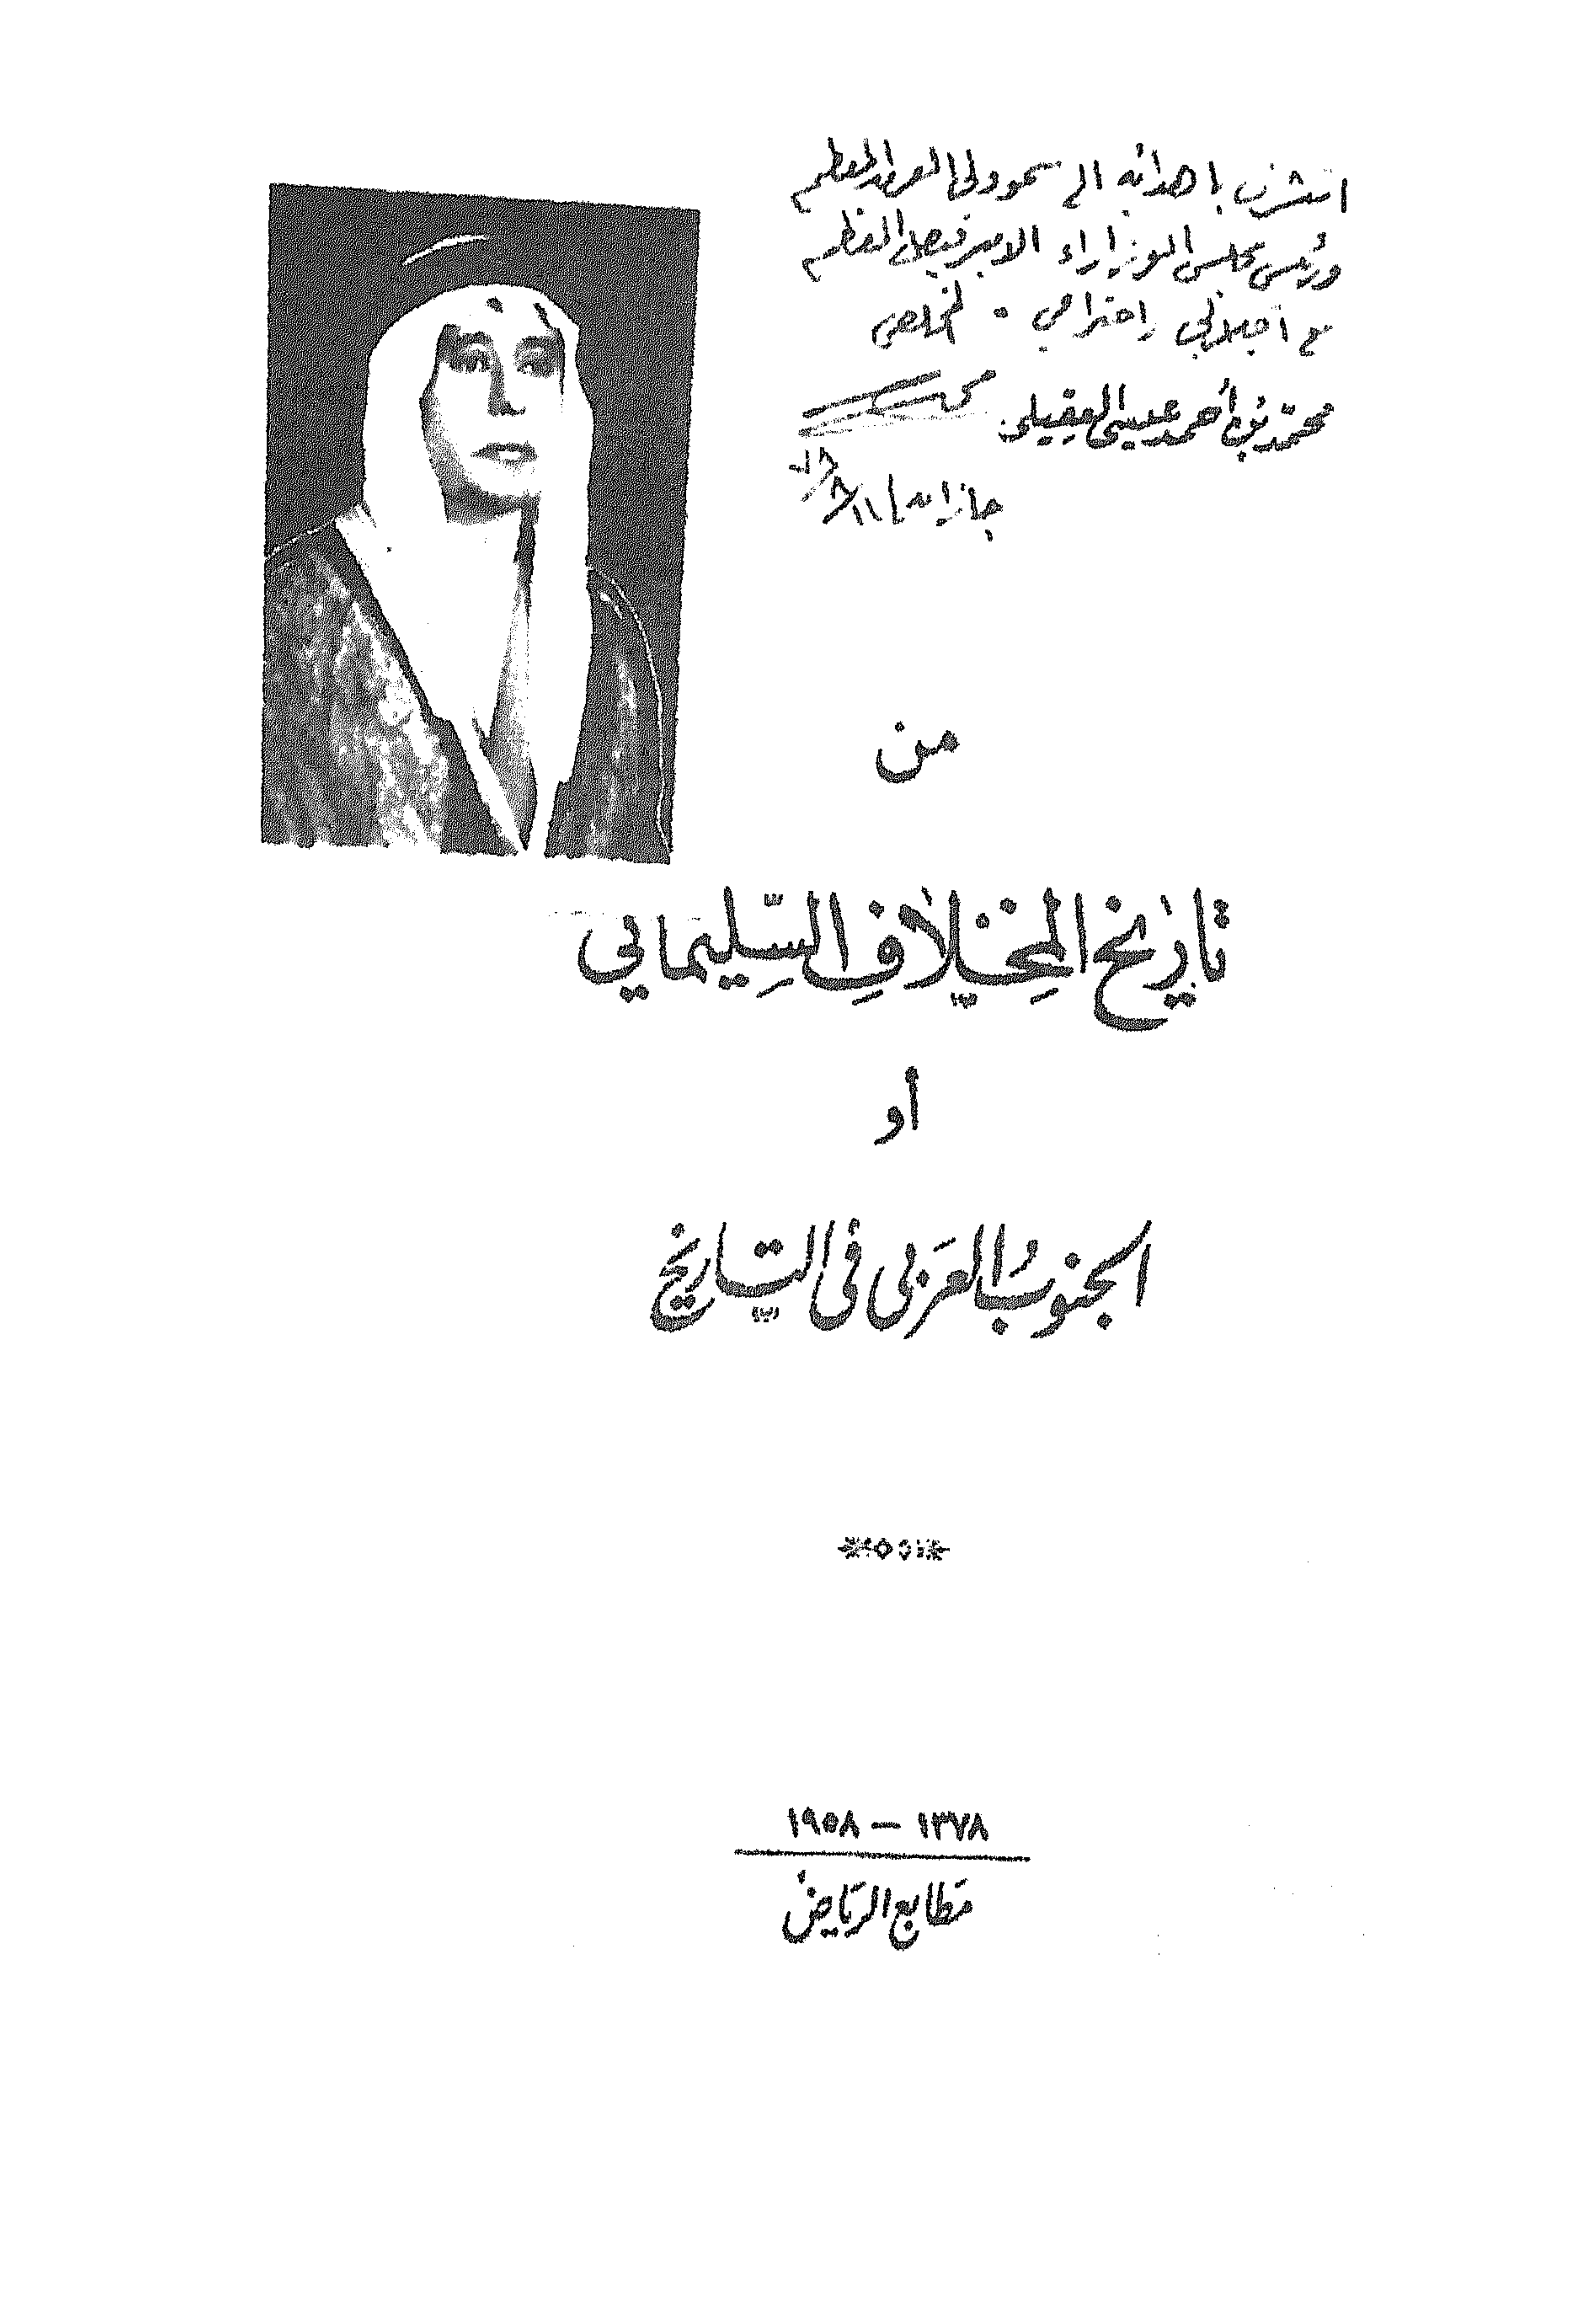 اتشرف باهدائه الى سمو ولي العهد المعظم
ورئيس مجلس الوزراء الامير فيصل المعظم
مع اجلالي واحترامي . المخلص
محمد بن أحمد عيسى العقيلي
جازان ١١/٨/٧٨
من
تاريخ المخلاف السليماني
أو
الجنوب العربي في التاريخ
١٣٧٨ — ١٩٥٨
مطابع الرياض